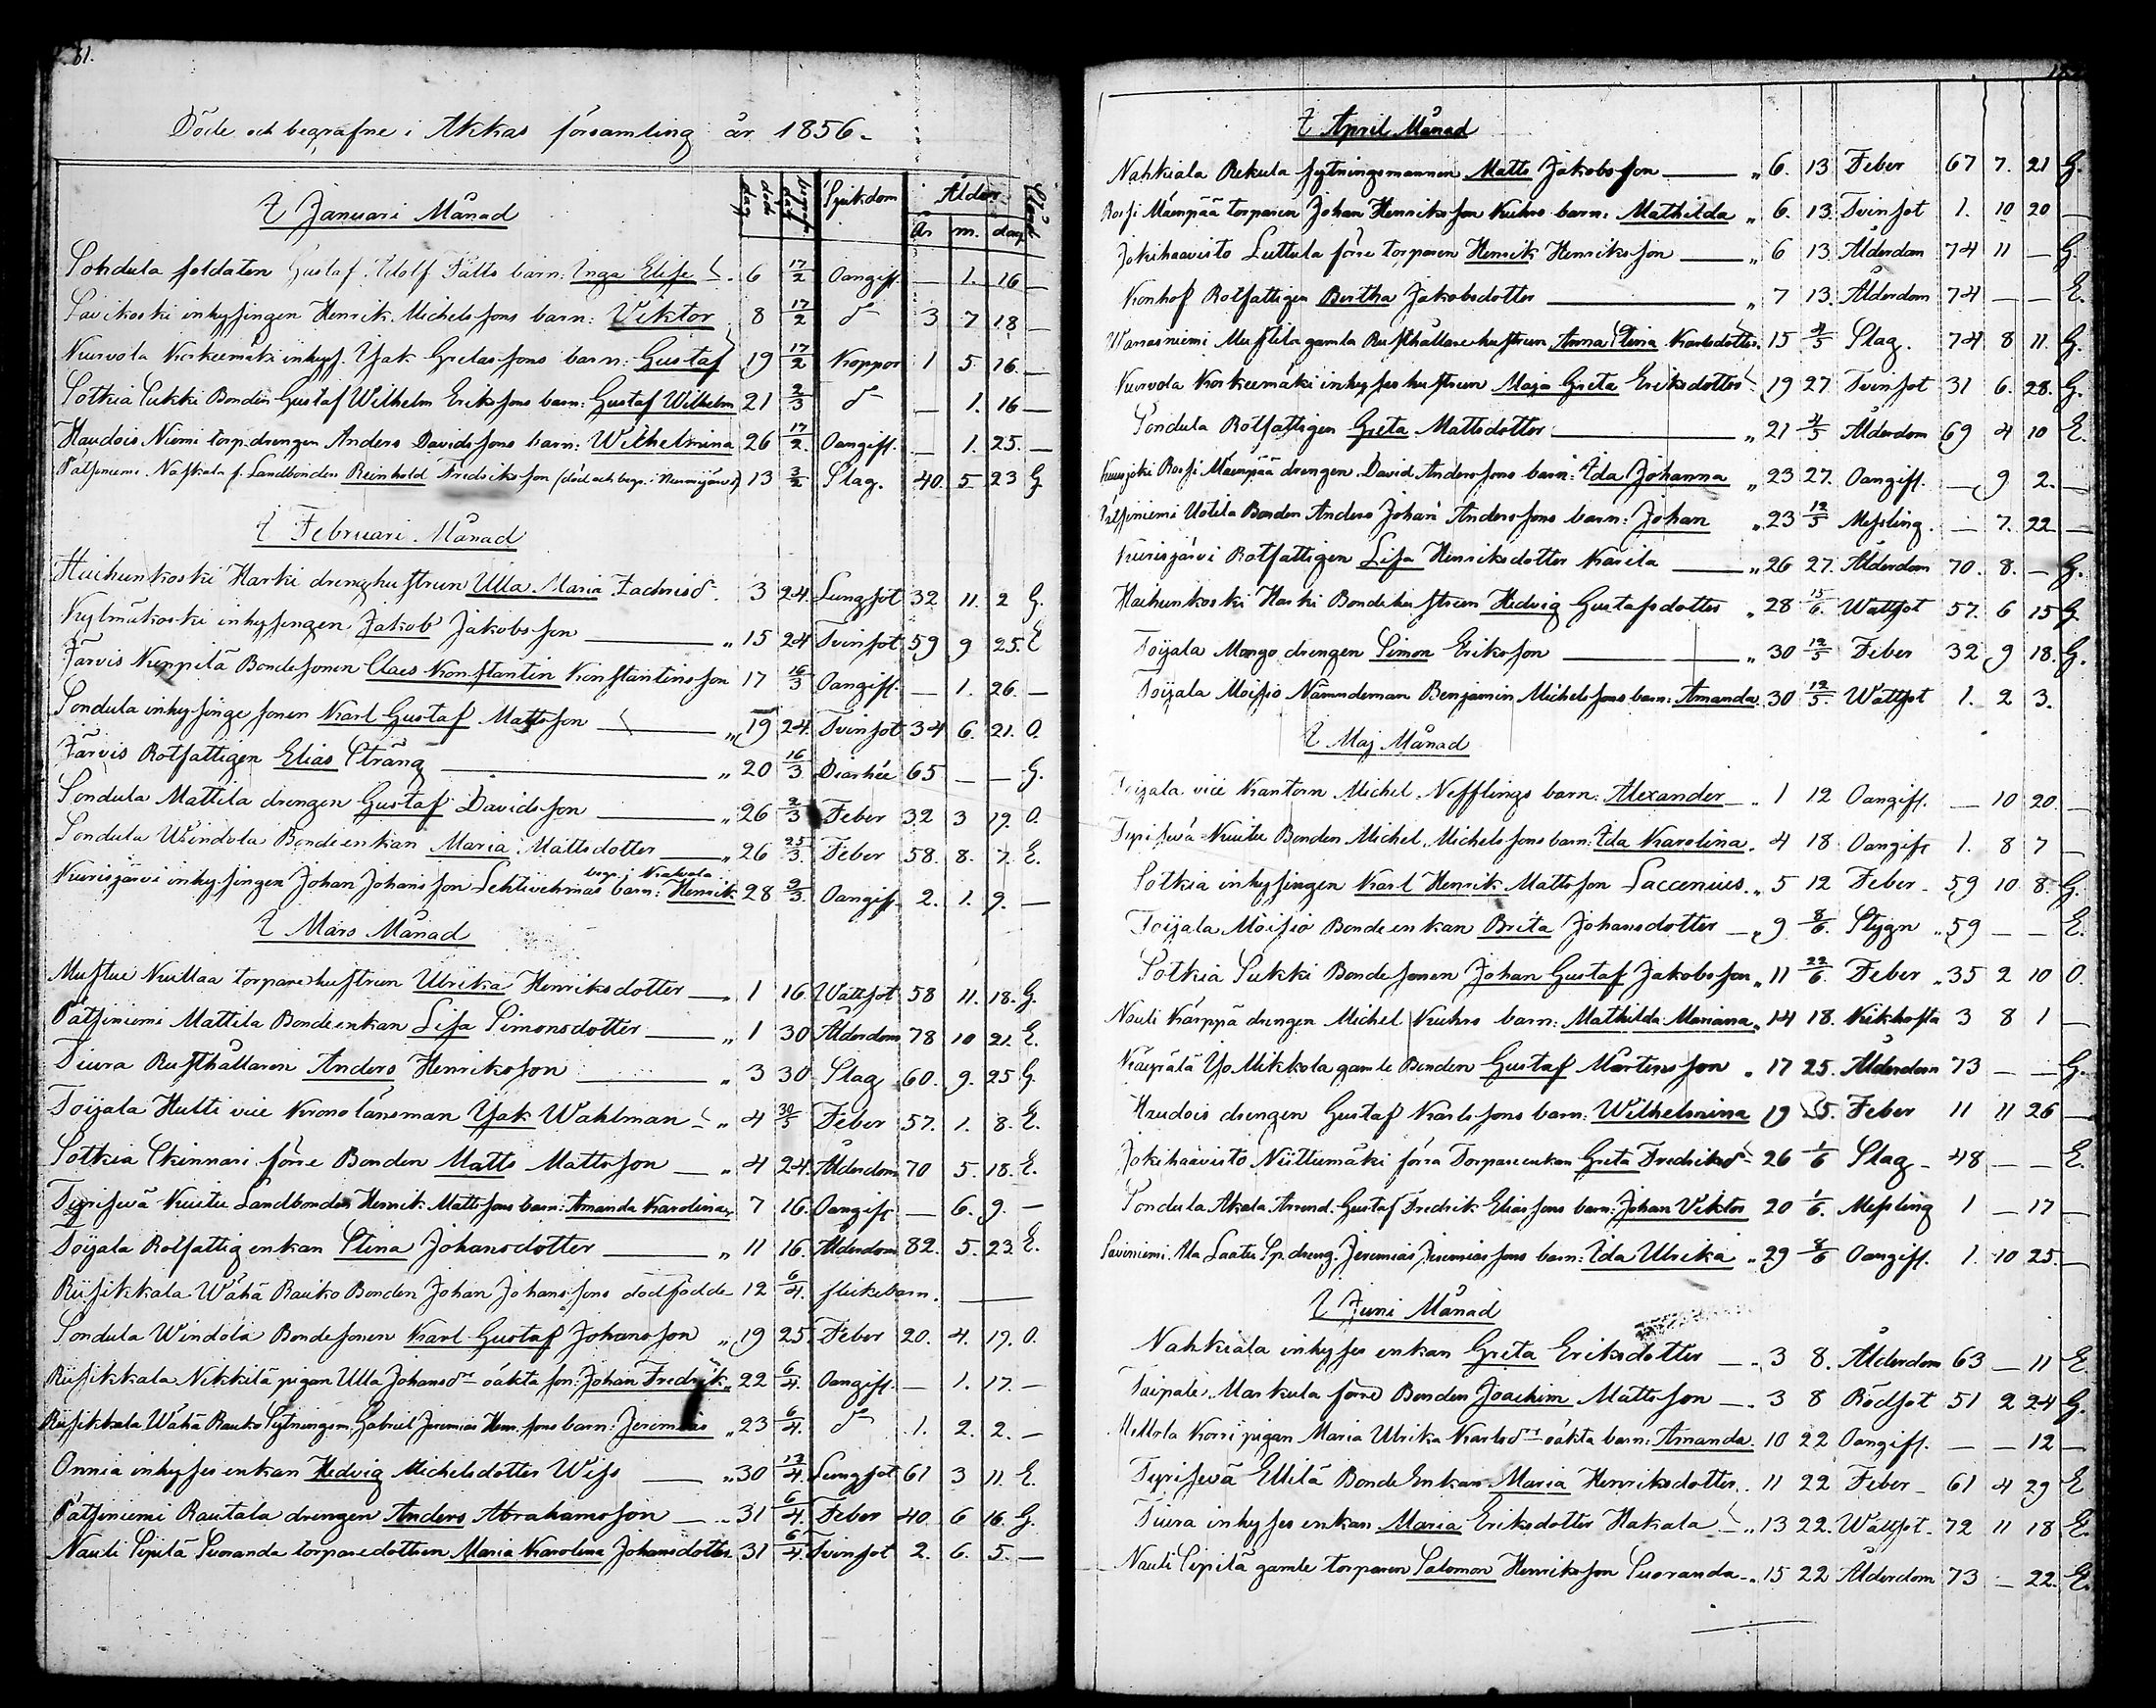 81.
Döde och begrafne i Akkas församling år 1856.
död dag begrafn. dag Sjukdom Ålder Stånd
År m. dag.
I Januari Månad
Sondula soldaten Gustaf Adolf Fälts barn: Inga Elise 6 17/2 Oangift. — 1. 16 —
Savikoski inhysingen Henrik Michelssons barn: Viktor 8 17/2 d:o 3 7 18 —
Kurvola Korkeemäki inhys. Isak Gretassons barn: Gustaf 19 17/2 Koppor 1 5 16 —
Sotkia Sukki Bonden Gustaf Wilhelm Erikssons barn: Gustaf Wilhelm 21 2/3 d:o — 1. 16 —
Haudois Niemi torp.drengen Anders Davidssons barn: Wilhelmina 26 17/2 Oangift. — 1. 25. —
Pätsiniemi Naskala f. Landbonden Reinhold Fredriksson (död och begr. i Nurmijärvi) 13 3/2 Slag. 40. 5 23 G.
I Februari Månad
Huihunkoski Harki drenghustrun Ulla Maria Zachrisd:r 3 24. Lungsot 32 11. 2 G.
Kylmäkoski inhysingen Jakob Jakobsson — " 15 24 Tvinsot 59 9 25. E
Järvis Kuppilä Bondesonen Claes Konstantin Konstantinsson 17 16/3 Oangift. — 1. 26. —
Sondula inhysinge sonen Karl Gustaf Mattsson — " 19 24. Tvinsot 34 6. 21. O.
Järvis Rotfattigen Elias Sträng — " 20 16/3 Diarhée 65 — — G.
Sondula Mattila drengen Gustaf Davidsson — " 26 2/3 Feber 32 3 19. O.
Sondula Windola Bondeenkan Maria Mattsdotter — " 26 25/3. Feber 58. 8. 7. E.
begr. i Kalvola
Kurisjärvi inhysingen Johan Johansson Lehtivehmas barn: Henrik 28 9/3. Oangift 2. 1. 9. —
I Mars Månad
Mustue Kullaa torparehustrun Ulrika Henriksdotter — " 1 16 Wattsot 58 11. 18. G.
Pätsiniemi Mattila Bondeenkan Lisa Simonsdotter — " 1 30 Ålderdom 78 10 21. E.
Tiura Rusthållaren Anders Henriksson — " 3 30 Slag 60. 9. 25 G.
Toijala Hutti vice Kronolänsman Isak Wahlman — " 4 30/3 Feber 57. 1. 8. E.
Sotkia Skinnari förre Bonden Matts Mattsson — " 4 24. Ålderdom 70 5. 18. E.
Tyrisevä Kuitu Landbonden Henrik Mattssons barn: Amanda Karolina 7 16. Oangift — 6. 9. —
Toijala Rotfattig enkan Stina Johansdotter — " 11 16. Ålderdom 82. 5. 23. E.
Riisikkala Wähä Rauko Bonden Johan Johanssons dödfödde 12 6/4. flickebarn. —
Sondula Windola Bondesonen Karl Gustaf Johansson " 19 25. Feber 20. 4. 19. O.
Riisikkala Nikkilä pigan Ulla Johansd:rs oäkta son: Johan Fredrik 22 6/4. Oangift. — 1. 17. —
Riisikkala Wähä Rauko Sytningsm. Gabriel Jeremias Henr.sons barn: Jeremias " 23 6/4. d:o 1. 2. 2. —
Onnia inhyses enkan Hedvig Michelsdotter Wiss — " 30 12/4. Lungsot 61 3 11. E.
Pätsiniemi Rautala drengen Anders Abrahamsson — " 31 6/4. Feber 40. 6 16. G.
Nauli Sipilä Suoranda torparedottren Maria Karolina Johansdotter 31 6/4. Tvinsot 2. 6. 5. —
I April Månad
Nahkiala Rekula sytningsmannen Matts Jakobsson — " 6. 13 Feber 67 7. 21 G.
Rossi Mäenpää torparen Johan Henriksson Kuhns barn: Mathilda " 6. 13. Tvinsot 1. 10 20 —
Jokihaavisto Luttula förre torparen Henrik Henriksson — " 6 13. Ålderdom 74 11 — G.
Konhof Rotfattigen Bertha Jakobsdotter — " 7 13. Ålderdom 74 — — E.
Warrasniemi Mustila gamla Rusthållarehustrun Anna Stina Karlsdotter 15 4/5 Slag. 74 8 11. G.
Kurvola Korkeemäki inhyseshustrun Maja Greta Eriksdotter 19 27. Tvinsot 31 6. 28. G.
Sondula Rotfattigen Greta Mattsdotter — " 21 4/5 Ålderdom 69 4 10 E.
Kuusjoki Rossi Mäenpää drengen David Anderssons barn: Ida Johanna " 23 27. Oangift. — 9 2. —
Pätsiniemi Uotila Bonden Anders Johan Anderssons barn: Johan " 23 12/5 Messling. — 7. 22 —
Kurisjärvi Rotfattigen Lisa Henriksdotter Karila — " 26 27. Ålderdom 70. 8. — G.
Huihunkoski Harki Bondehustrun Hedvig Gustafsdotter " 28 15/6. Wattsot 57. 6 15 G.
Toijala Mongo drengen Simon Eriksson — " 30 12/5 Feber 32 9 18. G.
Toijala Moisio Nämndeman Benjamin Michelssons barn: Amanda 30 12/5. Wattsot 1. 2 3.
I Maj Månad
Toijala vice Kantorn Michel Nefflings barn: Alexander — " 1 12 Oangift. — 10 20. —
Tyrisevä Kuitu Bonden Michel Michelssons barn: Ida Karolina. 4 18 Oangift 1. 8 7 —
Sotkia inhysingen Karl Henrik Mattsson Laccenius. " 5 12 Feber 59 10 8. G.
Toijala Moisio Bondeenkan Brita Johansdotter — " 9 8/6. Stygn " 59 — — E.
Sotkia Sukki Bondesonen Johan Gustaf Jakobsson " 11 22/6. Feber " 35 2 10 O.
Nauli Kärppä drengen Michel Kuhns barn: Mathilda Mariana " 14 18. Kikhosta 3 8 1 —
Käyrälä Yso Mikkola gamle Bonden Gustaf Mårtensson " 17 25. Ålderdom 73 — — G.
Haudois drengen Gustaf Karlssons barn: Wilhelmina 19 25. Feber 11 11 26 —
Jokihaavisto Niittumäki förra Torpareenkan Greta Fredriksd:r 26 1/6 Slag 48 — — E.
Sondula Akala Arrend. Gustaf Fredrik Eliassons barn: Johan Viktor 20 1/6. Messling 1 — 17 —
Saviniemi Ala Laatu Sp.dreng. Jeremias Jeremiassons barn: Ida Ulrika " 29 8/6 Oangift. 1. 10 25. —
I Juni Månad
Nahkiala inhyses enkan Greta Eriksdotter — " 3 8. Ålderdom 63 — 11 E
Taipale Markula förre Bonden Joachim Mattsson — " 3 8 Rödsot 51 2 24 G.
Mellola Korri pigan Maria Ulrika Karlsd:rs oäkta barn: Amanda. 10 22 Oangift. — — 12 —
Tyrisevä Ellilä Bonde Enkan Maria Henriksdotter. " 11 22 Feber 61 4 29 E
Tiura inhyses enkan Maria Eriksdotter Hakala — " 13 22. Wattsot 72 11 18 E.
Nauli Sipilä gamle torparen Salomon Henriksson Suoranda " 15 22 Ålderdom 73 — 22. E.